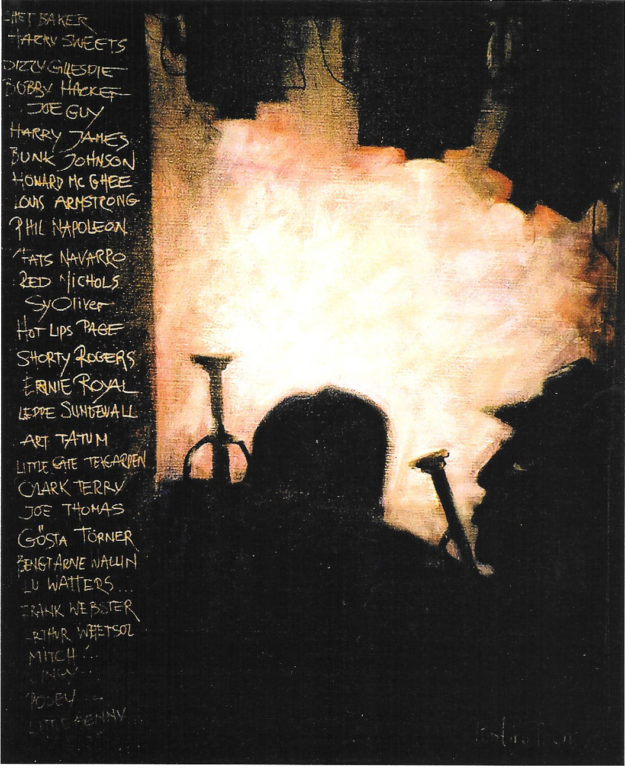 CHET BAKER
HARRY SWEETS
DIZZY GILLESPIE
BOBBY HACKET
JOE GUY
HARRY JAMES
BUNK JOHNSON
HOWARD MC GHEE
LOUIS ARMSTRONG
PHIL NAPOLEON
FATS NAVARRO
RED NICHOLS
Sy Oliver
HOT LIPS PAGE
SHORTY ROGERS
ERNIE ROYAL
LEPPE SUNDEWALL
ART TATUM
LITTLE GATE TEAGARDEN
CLARK TERRY
JOE THOMAS
GÖSTA TÖRNER
BENGT ARNE WALLIN
LU WATTERS...
FRANK WEBSTER
ARTHUR WEETSOL
MITCH